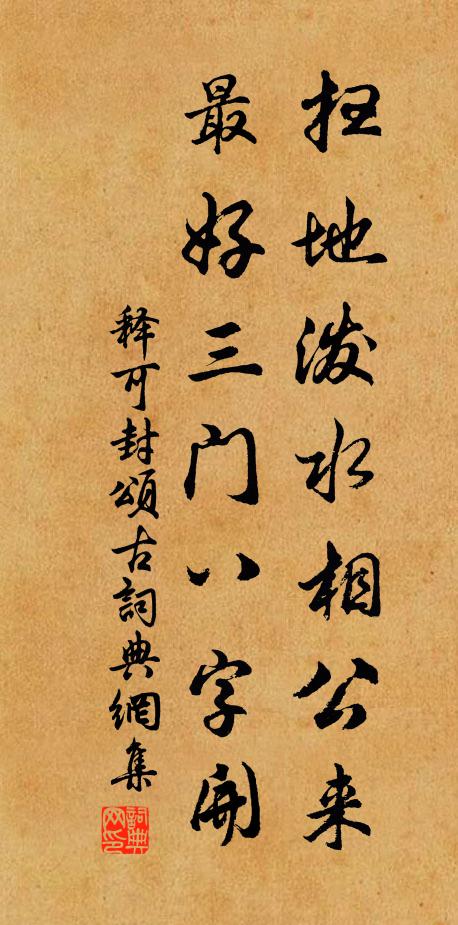 扫地泼水相公来
最好三门八字开
释可封颂古詞典網集
詞典网印